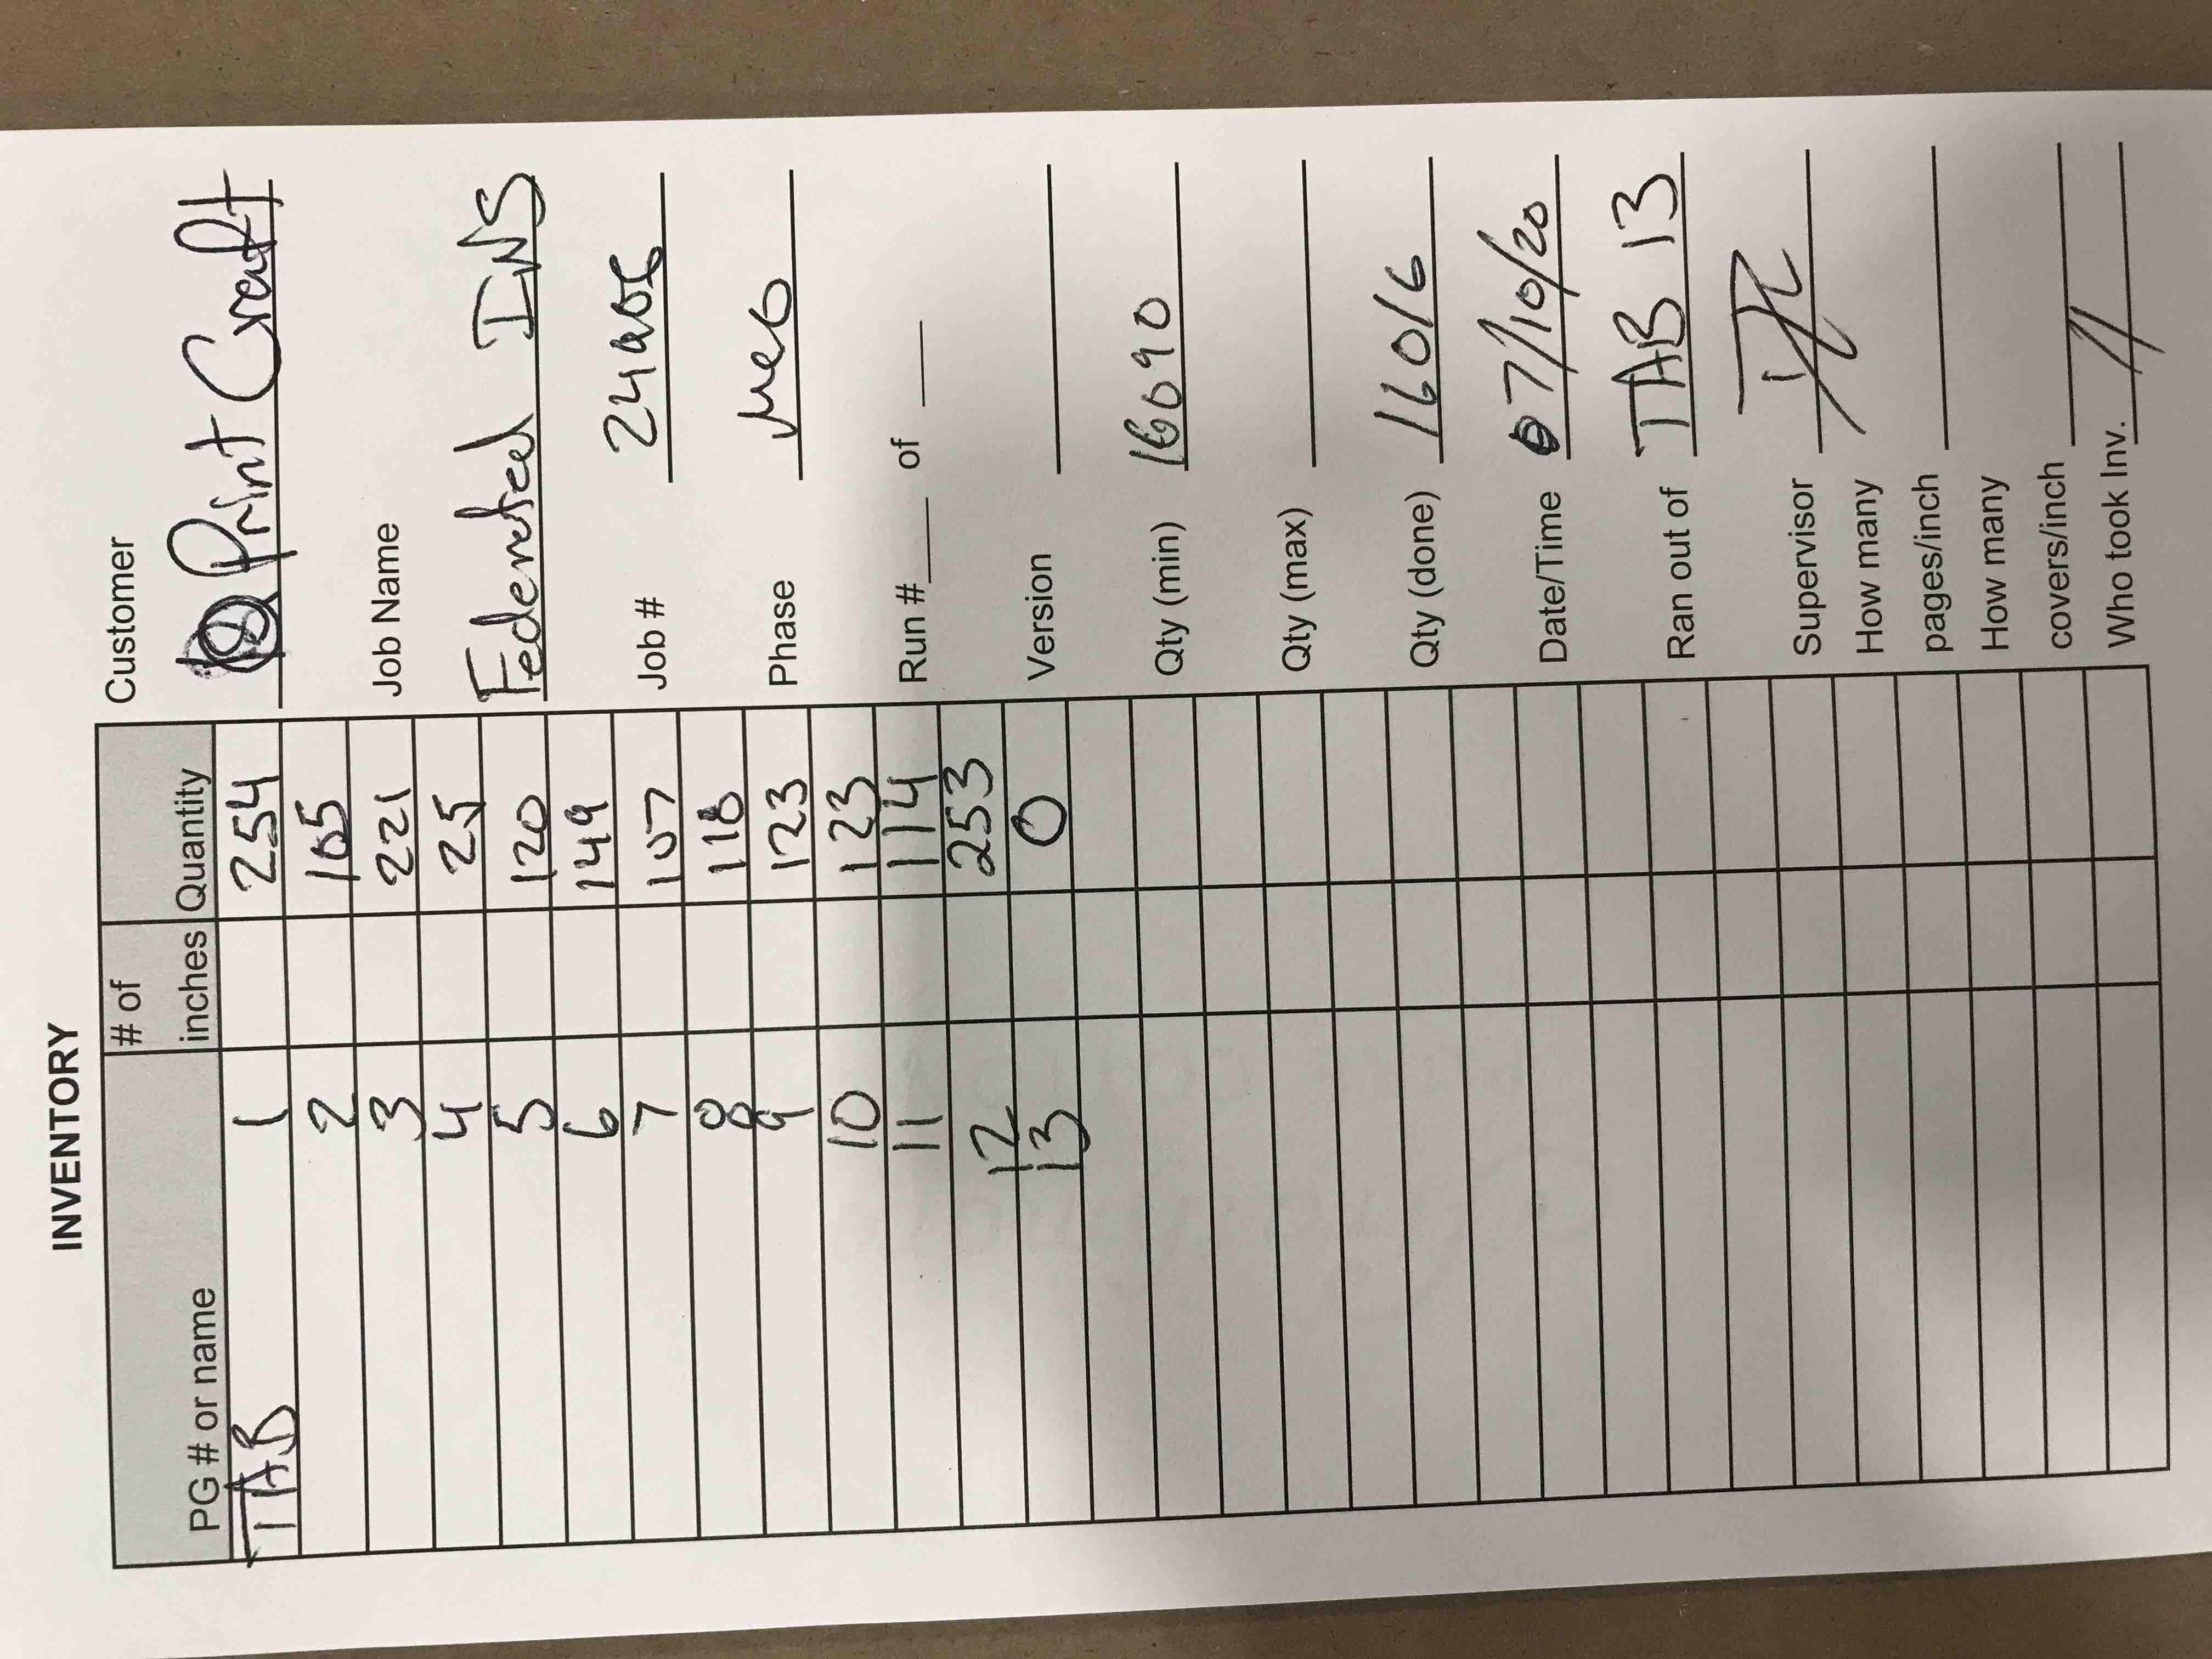 INVENTORY
PG # or name # of inches Quantity
TAB 1 254
2 105
3 221
4 25
5 120
6 149
7 107
8 118
9 123
10 123
11 114
12 253
13 0
Customer
Print Craft
Job Name
Federated INS
Job #
Phase
Run #____ of ____
Version
Qty (min) 16090
Qty (max)
Qty (done) 16016
Date/Time 07/10/20
Ran out of TAB 13
Supervisor
How many
pages/inch
How many
covers/inch
Who took Inv.